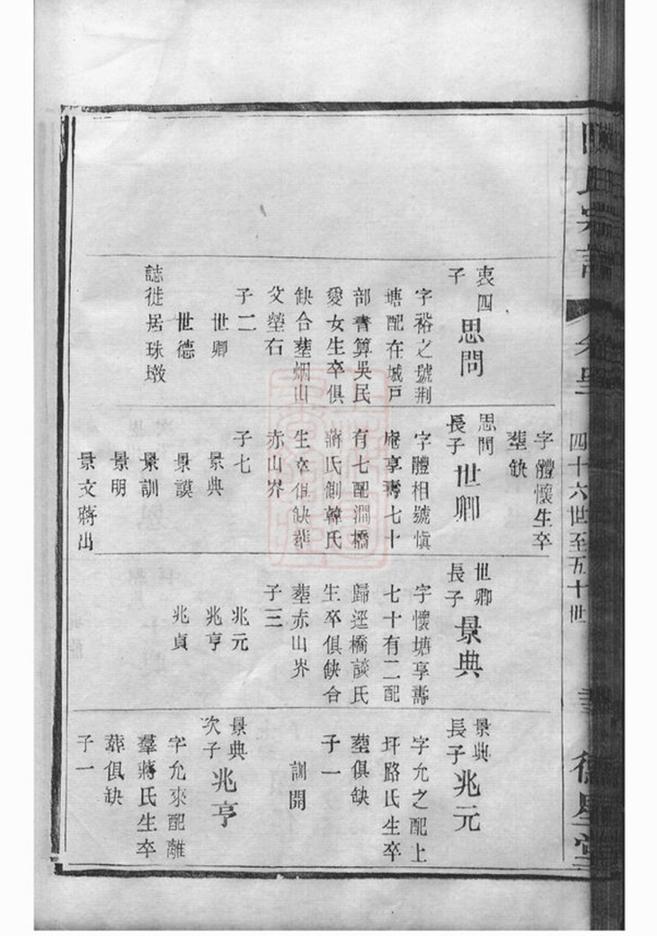 四十六世至五十世
字體懷生卒
塟缺
衷四
子
思問
字裕之號荆
塘配在城戸
部書算吳氏
愛女生卒俱
缺合塟烟山
文塋右
子二
世卿
世德
誌徙居珠墩
思問
長子
世卿
字體相號愼
菴享壽七十
有七配澗橋
蔣氏側韓氏
生卒俱缺葬
赤山界
子七
景典
景謨
景訓
景明
景文蔣出
世卿
長子
景典
字懷塘享壽
七十有二配
歸逕橋談氏
生卒俱缺合
塟赤山界
子三
兆元
兆亨
兆貞
景典
長子
兆元
字允之配上
圩路氏生卒
塟俱缺
子一
訓開
景典
次子
兆亨
字允來配離
羣蔣氏生卒
葬俱缺
子一